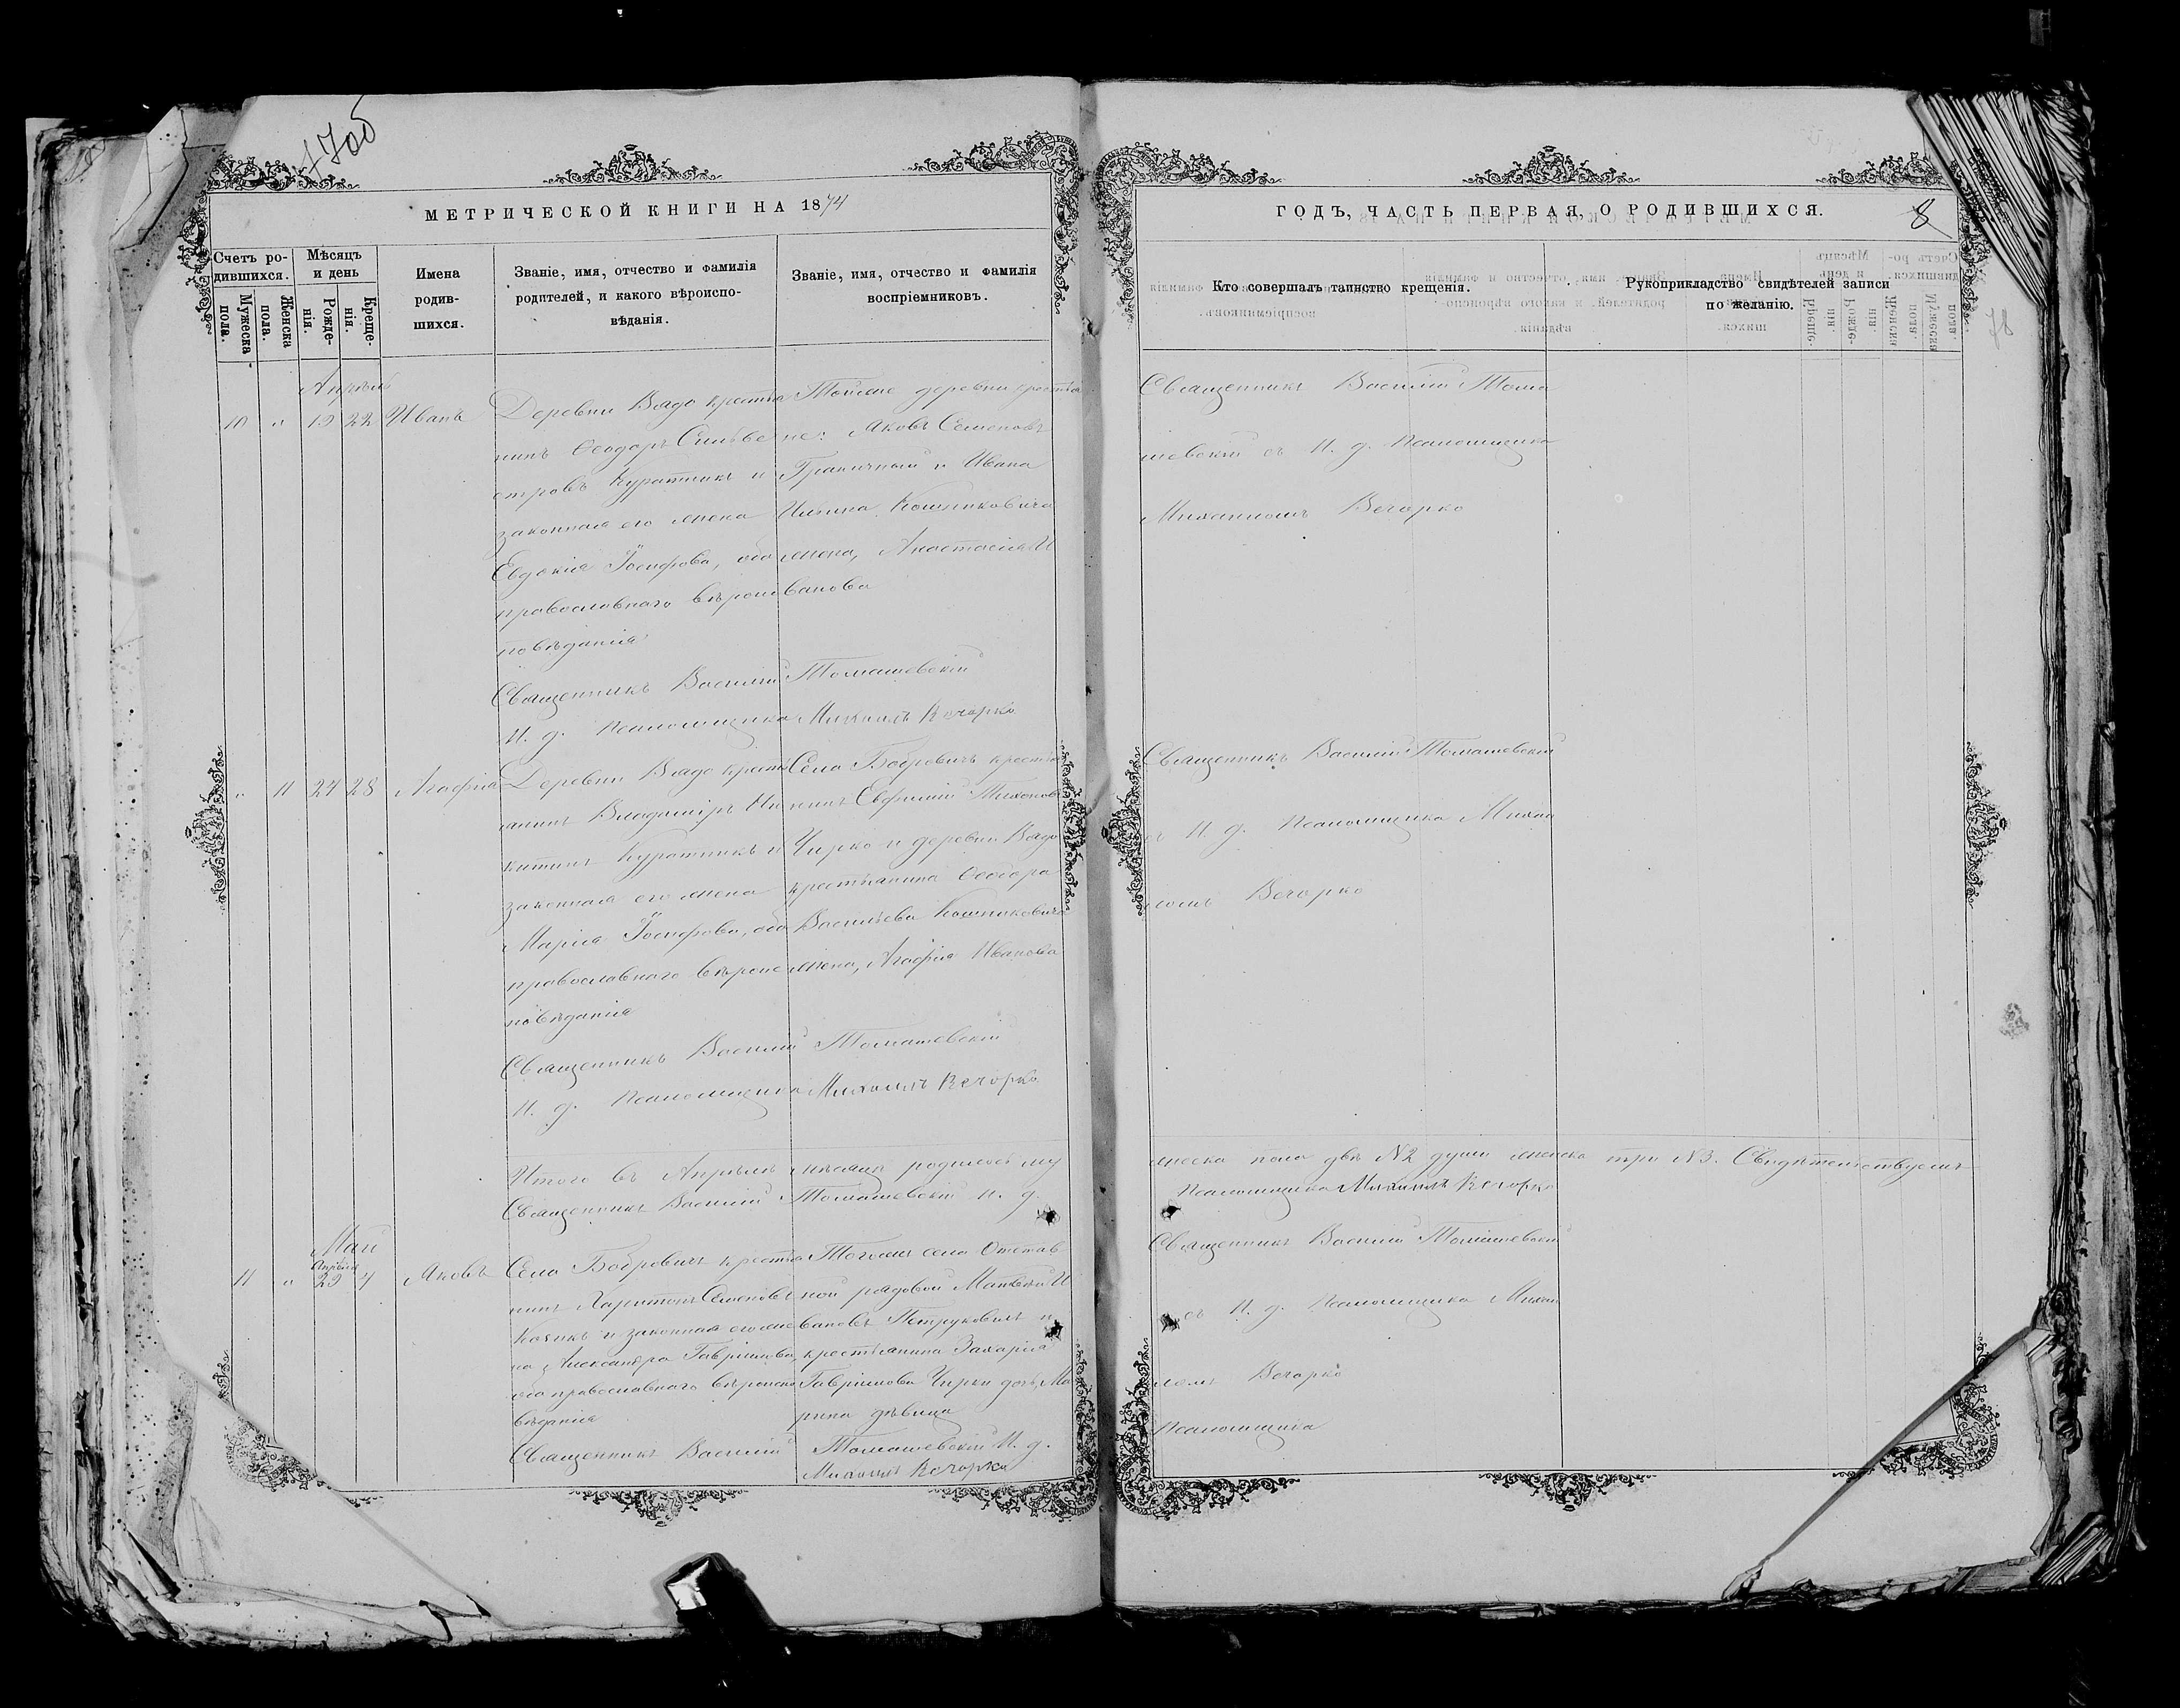 1700
МЕТРИЧЕСКОЙ КНИГИ НА 1874
Счетъ ро-
дившихся.
Мужеска
пола.
Женска
пола.
Мѣсяцъ
и день
Рожде-
нія.
Креще-
нія.
Имена
родив-
шихся.
Званіе, имя, отчество и фамилія
родителей, и какого вѣроиспо-
вѣданія.
Званіе, имя, отчество и фамилія
воспріемниковъ.
Апрѣль
10 " 19 22 Иванъ
Деревни Вядо крестья
нинъ Ѳеодоръ Сильве
стровъ Куратникъ и
законная его жена
Евдокія Іосифова, оба
православнаго вѣроис
повѣданія
Тойже деревни крестья
не: Яковъ Семеновъ
Граничный и Ивана
Ильина Кошниковича
жена, Анастасія И
ванова
Священникъ Василій Томашевскій
И. д. Псаломщика Михаилъ Вечорко
" 11 24 28 Агафія
Деревни Вядо кресть
янинъ Владиміръ Ни
китинъ Куратникъ и
законная его жена
Марія Іосифова, оба
православнаго вѣроис
повѣданія
Села Бобровичъ крестья
нинъ Евфимій Тихонов
Чирко и деревни Вядо
крестьянина Ѳеодора
Васильева Кошниковича
жена, Агафія Иванова
Священникъ Василій Томашевскій
И. д. Псаломщика Михаилъ Вечорко
Итого въ Апрѣлѣ мѣсяцѣ родилось му
Священникъ Василій Томашевскій И. д.
Май
Апрѣля
11 " 29 4 Яковъ
Села Бобровичъ крестья
нинъ Харитонъ Семеновъ
Козикъ и законная его же
на Александра Гавріилова,
оба православнаго вѣроиспо
вѣданія
Тогоже села Отстав
ной рядовой Матвѣй И
вановъ Петруковичъ и
крестьянина Захарія
Гавріилова Чирки дочь, Ма
рина дѣвица
Священникъ Василій Томашевскій И. д.
Михаилъ Вечорко
ГОДЪ, ЧАСТЬ ПЕРВАЯ, О РОДИВШИХСЯ.
8
78
Кто совершалъ таинство крещенія.
Рукоприкладство свидѣтелей записи
по желанію.
Священникъ Василій Тома
шевскій съ И. д. Псаломщика
Михаиломъ Вечорко
Священникъ Василій Томашевскій
съ И. д. Псаломщика Михаи
ломъ Вечорко
жеска пола двѣ №2 души женска три №3. Свидѣтельствуемъ
Псаломщика Михаилъ Вечорко
Священникъ Василій Томашевскій
съ И. д. Псаломщика Михаи
ломъ Вечорко
Псаломщика